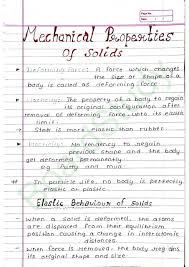 Mechanical Properties
Of Solids
Deforming force: A force which changes
the size or shape of a
body is called as deforming force.
Elasticity: The property of a body to regain
its original configuration after
removal of deforming force upto its elastic
limit.
Steel is more elastic than rubber.
Plasticity: No tendency to regain
previous shape and the body
get deformed permanently.
eg: Putty and mud
In particle life, no body is perfectly
elastic or plastic.
Elastic Behaviour of Solids
When a solid is deformed, the atoms
are displaced from their equilibrium
position causing a change in interatomic
distances.
When force is removed, the body regains
its original shape and size.